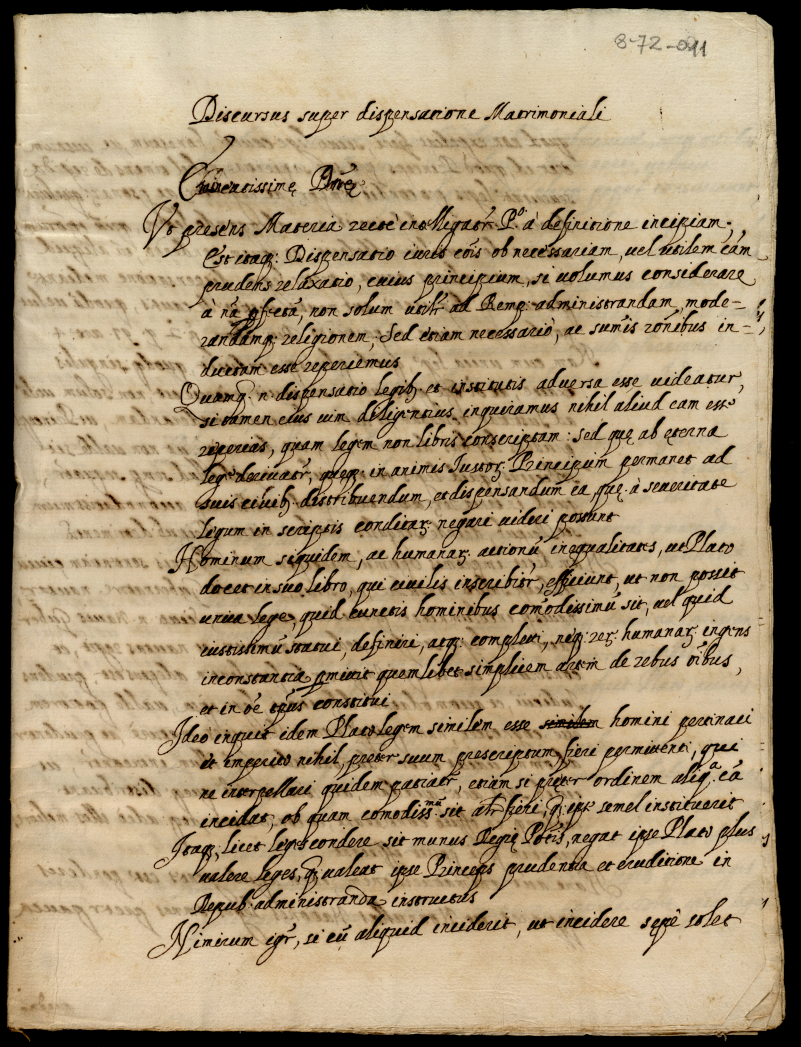 8-72-011
Discursus super dispensatione Matrimoniali
Ut presens Materia rectè intelligatr. Po. à definitione incipiam.
Est itaq: Dispensatio iuris cõis ob necessariam, uel utilem cãm
prudens relaxatio, cuius principium, si uolumus considerare
à nã, non solum utilr ad Remp: administrandam, mode-
randamq; religionem, Sed etiam necessario, ac sumis rõnibus in-
ductam esse reperiemus
Quamq. n. dispensatio legib; et institutis adversa esse uideatur,
si tamen eius uim diligentius inquiramus nihil aliud eam esse
reperies, quam legem non libris conscriptam: sed quę ab ęterna
lege deriuatr, quęq: in animis Iustor; Principum permanet ad
suis ciuib; distribuendum, et dispensandum ea quę à seueritate
legum in scriptis conditar; negari uideri possunt
Hominum siquidem, ac humanar; actionũ inęqualitates, ut Plato
docet in suo libro, qui ciuilis inscribitr, efficiunt, ut non possit
unica lege, quid cunctis hominibus comodissimũ sit, uel quid
iustissimũ statui, definiri, atq; completi, neq; rer; humanar; ingens
inconstantia pmittit quemlibet simplicem artem de rebus oĩbus,
et in oẽ tp̃us constitui
Ideo inquit idem Plato legem similem esse similem homini pertinaci
et imperito nihil, preter suum prescriptum, fieri permittenti, qui
ne interpellari quidem patiatr, etiam si preter ordinem aliqa. cã
incidat, ob quam comodissma. sit alr fieri, q̃ ipse semel instituerit
Itaq; licet leges condere sit munus Regię Potis, negat ipse Plato plus
ualere leges, q̃ ualeat ipse Princeps prudentia et eruditione in
Repub. administranda instructus
Nimirum igr, si cũ aliquid inciderit, ut incidere sepè solet